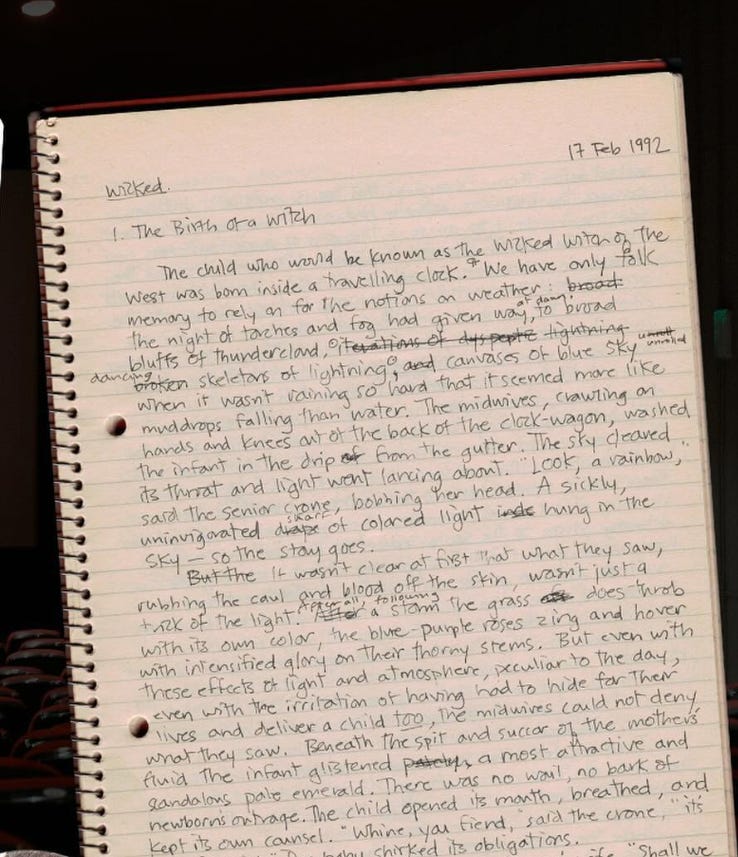 17 Feb 1992
Wicked.
1. The Birth of a Witch
The child who would be known as the Wicked Witch of the
West was born inside a travelling clock. "We have only folk
memory to rely on for the notions on weather: broad
the night of torches and fog had given way, at dawn, to broad
bluffs of thundercloud, iterations of dyspeptic lightning
dancing broken skeletons of lightning, and canvases of blue sky unrolled
when it wasn't raining so hard that it seemed more like
muddrops falling than water. The midwives, crawling on
hands and knees out of the back of the clock-wagon, washed
the infant in the drip of from the gutter. The sky cleared
its throat and light went lancing about. "Look, a rainbow,"
said the senior crone, bobbing her head. A sickly,
uninvigorated scarf drape of colored light hung in the
sky — so the story goes.
But the It wasn't clear at first that what they saw,
rubbing the caul and blood off the skin, wasn't just a
trick of the light. After all, following a storm the grass does throb
with its own color, the blue-purple roses zing and hover
with intensified glory on their thorny stems. But even with
these effects of light and atmosphere, peculiar to the day,
even with the irritation of having had to hide for their
lives and deliver a child too, the midwives could not deny
what they saw. Beneath the spit and succor of the mothers'
fluid the infant glistened palely, a most attractive and
scandalous pale emerald. There was no wail, no bark of
newborns outrage. The child opened its mouth, breathed, and
kept its own counsel. "Whine, you fiend," said the crone, "its
baby shirked its obligations.
"Shall we